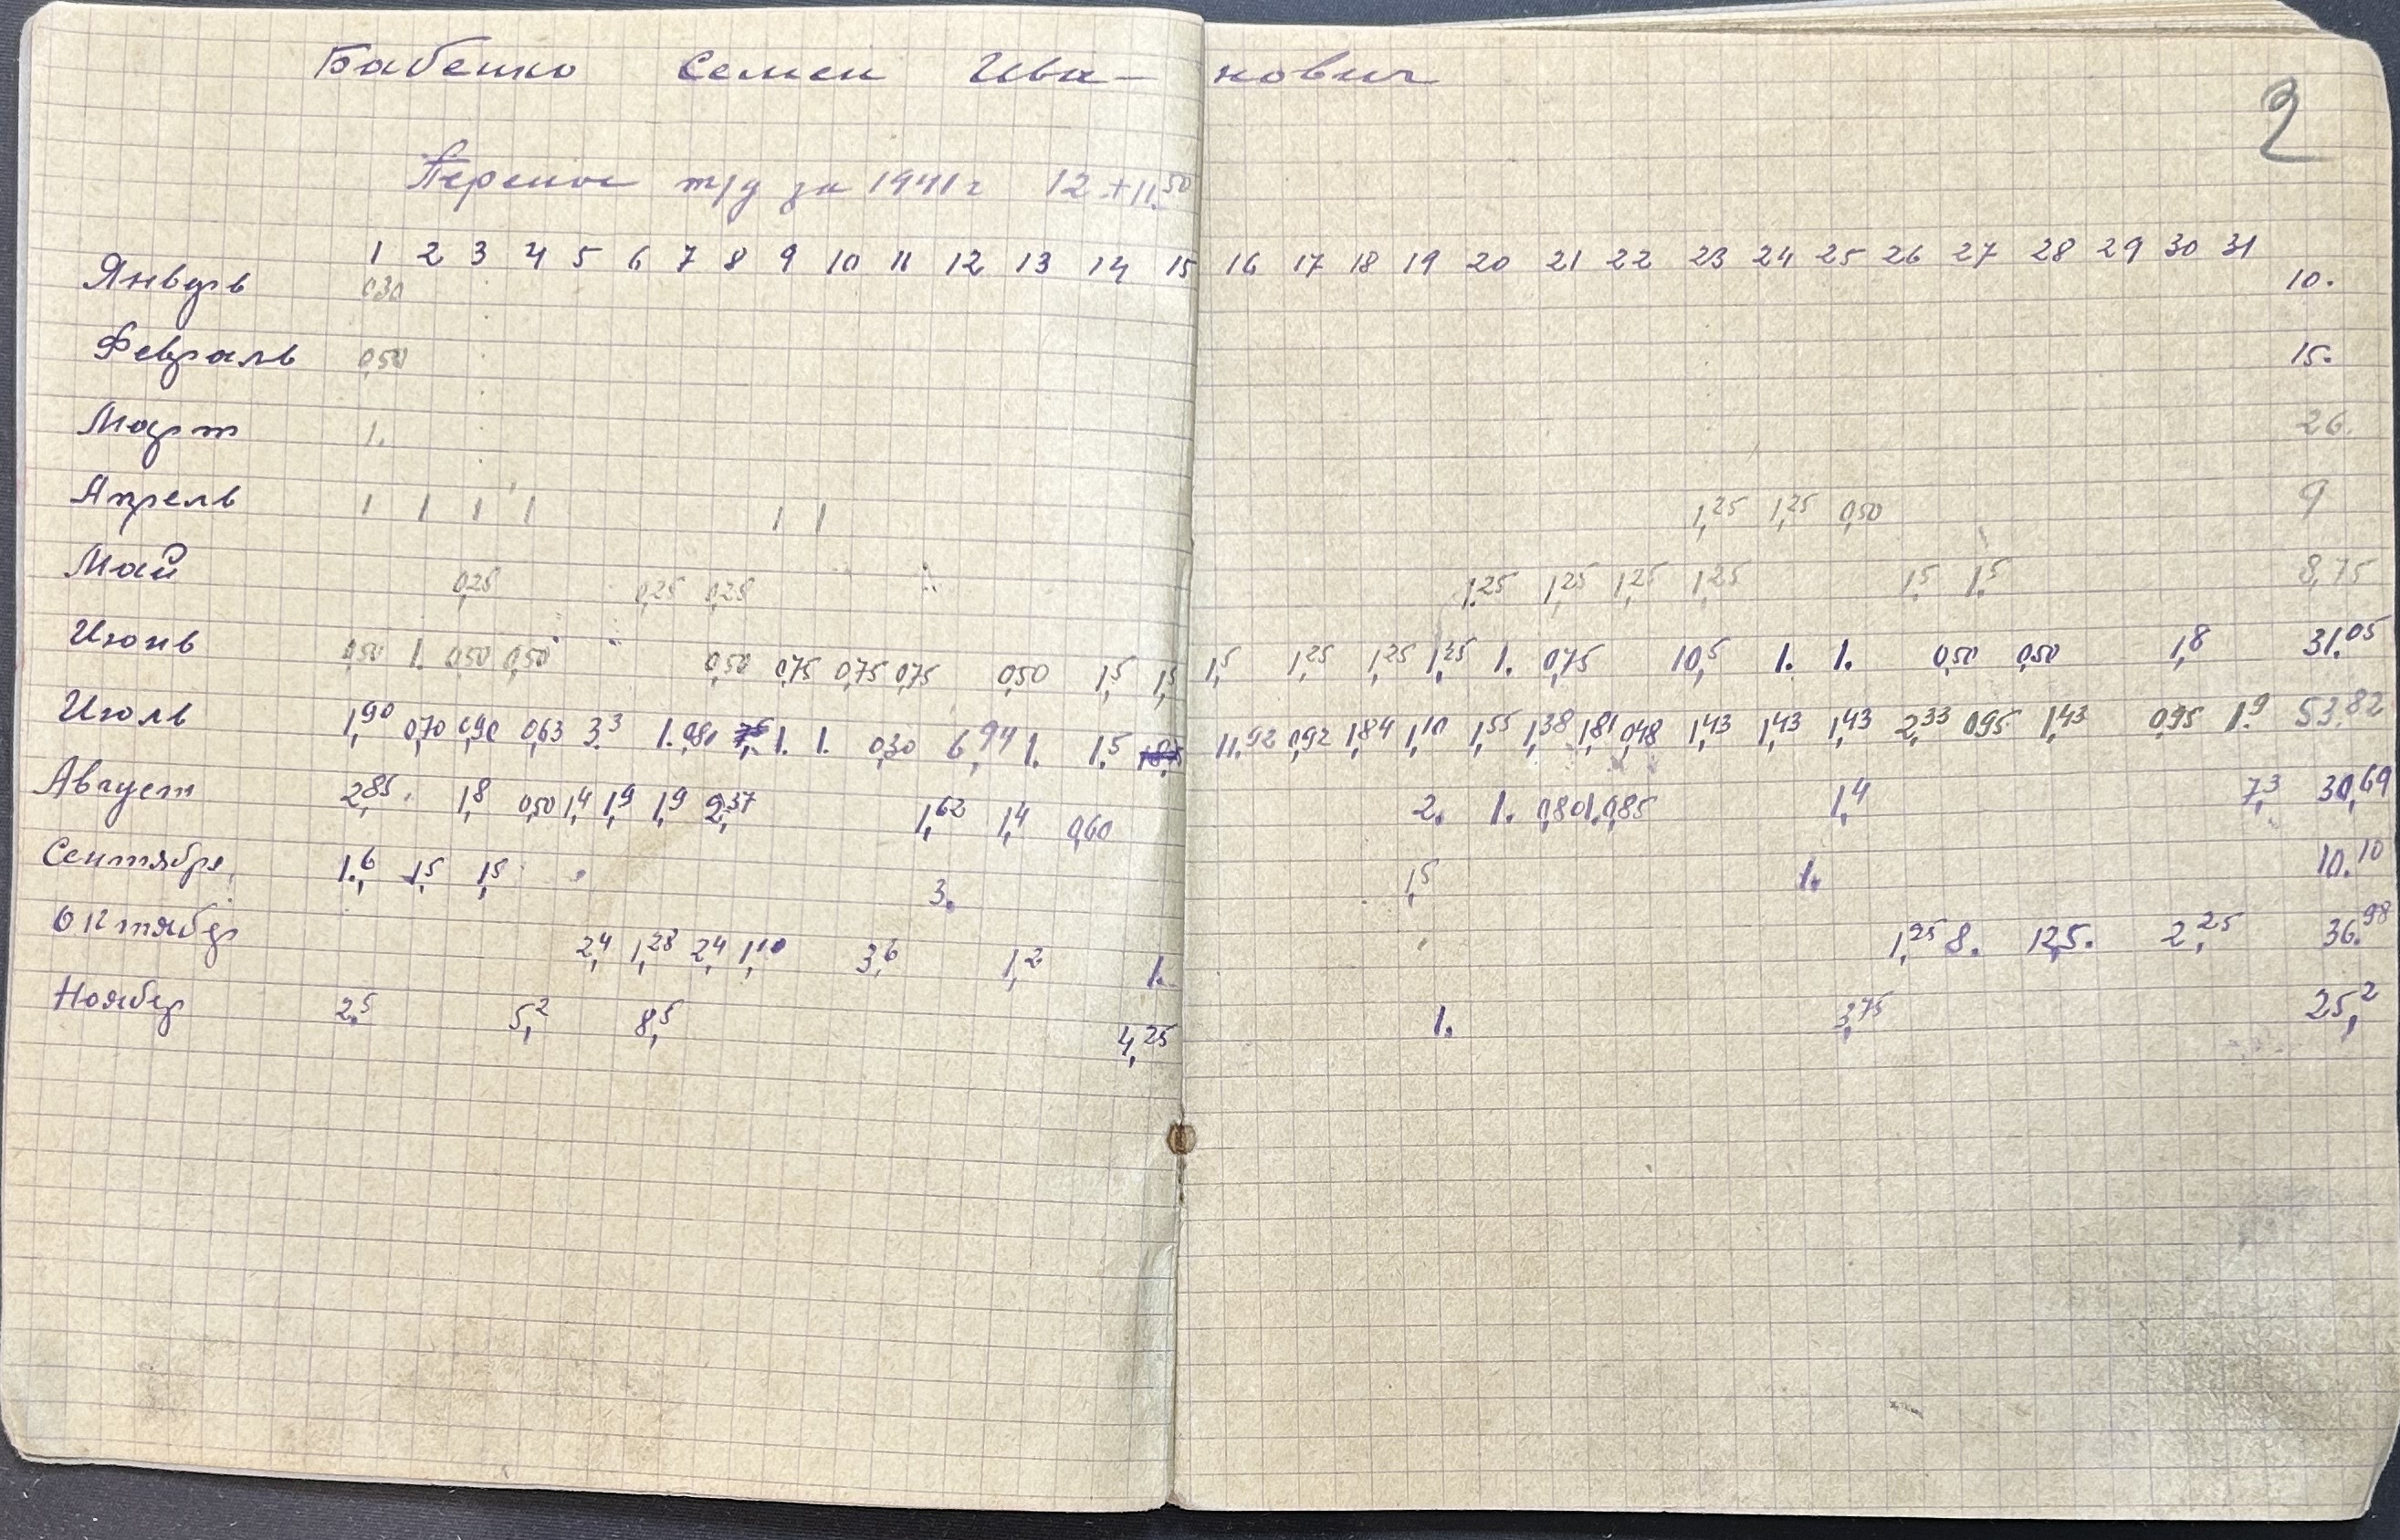 Бабенко Семен Ива- нович
2
Перенос т/д за 1941 г 12 + 11.50
1 2 3 4 5 6 7 8 9 10 11 12 13 14 15 16 17 18 19 20 21 22 23 24 25 26 27 28 29 30 31
Январь 0,30 10.
Февраль 0,50 15.
Март 1. 26.
Апрель 1 1 1 1 1 1 1,25 1,25 0,50 9
Май 0,25 0,25 0,25 1.25 1,25 1,25 1,25 1,5 1.5 8,75
Июнь 0,50 1. 0,50 0,50 0,50 0,75 0,75 0,75 0,50 1,5 1,5 1,5 1,25 1,25 1,25 1. 0,75 10,5 1. 1. 0,50 0,50 1,8 31.05
Июль 1,90 0,70 0,90 0,63 3.3 1. 0,81 1. 1. 0,30 6,94 1. 1.5 11.92 0,92 1,84 1,10 1,55 1,38 1,81 0,48 1,43 1,43 1,43 2,33 0,95 1,43 0,95 1.9 53.82
Август 2,85 1,8 0,50 1,4 1,9 1,9 2,37 1,62 1,4 0,60 2. 1. 0,80 1. 0,85 1,4 7,3 30,69
Сентябрь 1.6 1,5 1,5 3. 1,5 1. 10.10
Октябр 2,4 1,28 2,4 1,10 3,6 1,2 1. 1,25 8. 12,5. 2,25 36.98
Ноябр 2.5 5,2 8,5 4,25 1. 3,75 25,2